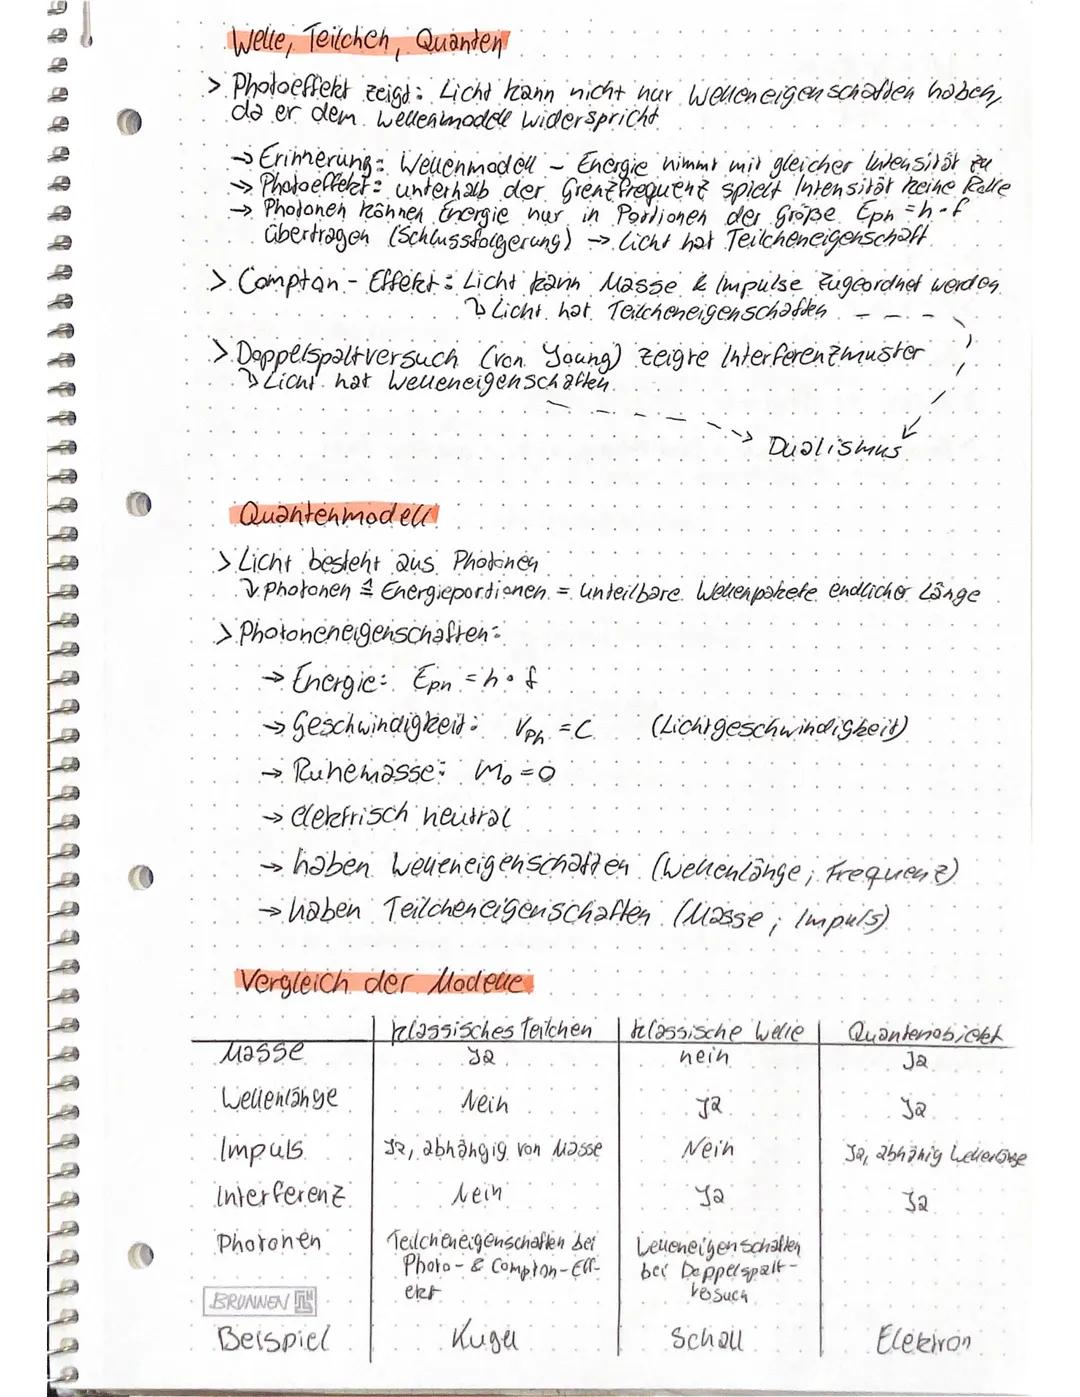 Welle, Teilchen, Quanten
> Photoeffekt zeigt: Licht kann nicht nur Welleneigenschaften haben,
da er dem Wellenmodell widerspricht
→ Erinnerung: Wellenmodell – Energie nimmt mit gleicher Intensität zu
→ Photoeffekt: unterhalb der Grenzfrequenz spielt Intensität keine Rolle
→ Photonen können Energie nur in Portionen der Größe Eph = h·f
übertragen (Schlussfolgerung) → Licht hat Teilcheneigenschaft
> Compton-Effekt: Licht kann Masse & Impulse zugeordnet werden
↳ Licht hat Teilcheneigenschaften
> Doppelspaltversuch (von Young) zeigte Interferenzmuster
↳ Licht hat Welleneigenschaften
Dualismus
Quantenmodell
> Licht besteht aus Photonen
↳ Photonen ≙ Energieportionen = unteilbare Wellenpakete endlicher Länge
> Photoneneigenschaften:
→ Energie: Eph = h · f
→ Geschwindigkeit: VPh = C (Lichtgeschwindigkeit)
→ Ruhemasse: m₀ = 0
→ elektrisch neutral
→ haben Welleneigenschaften (Wellenlänge; Frequenz)
→ haben Teilcheneigenschaften (Masse; Impuls)
Vergleich der Modelle
klassisches Teilchen klassische Welle Quantenobjekt
Masse Ja nein Ja
Wellenlänge Nein Ja Ja
Impuls Ja, abhängig von Masse Nein Ja, abhänig Wellenlänge
Interferenz Nein Ja Ja
Photonen Teilcheneigenschaften bei Welleneigenschaften
Photo- & Compton-Eff- bei Doppelspalt-
ekt vesuch
BRUNNEN
Beispiel Kugel Schall Elektron